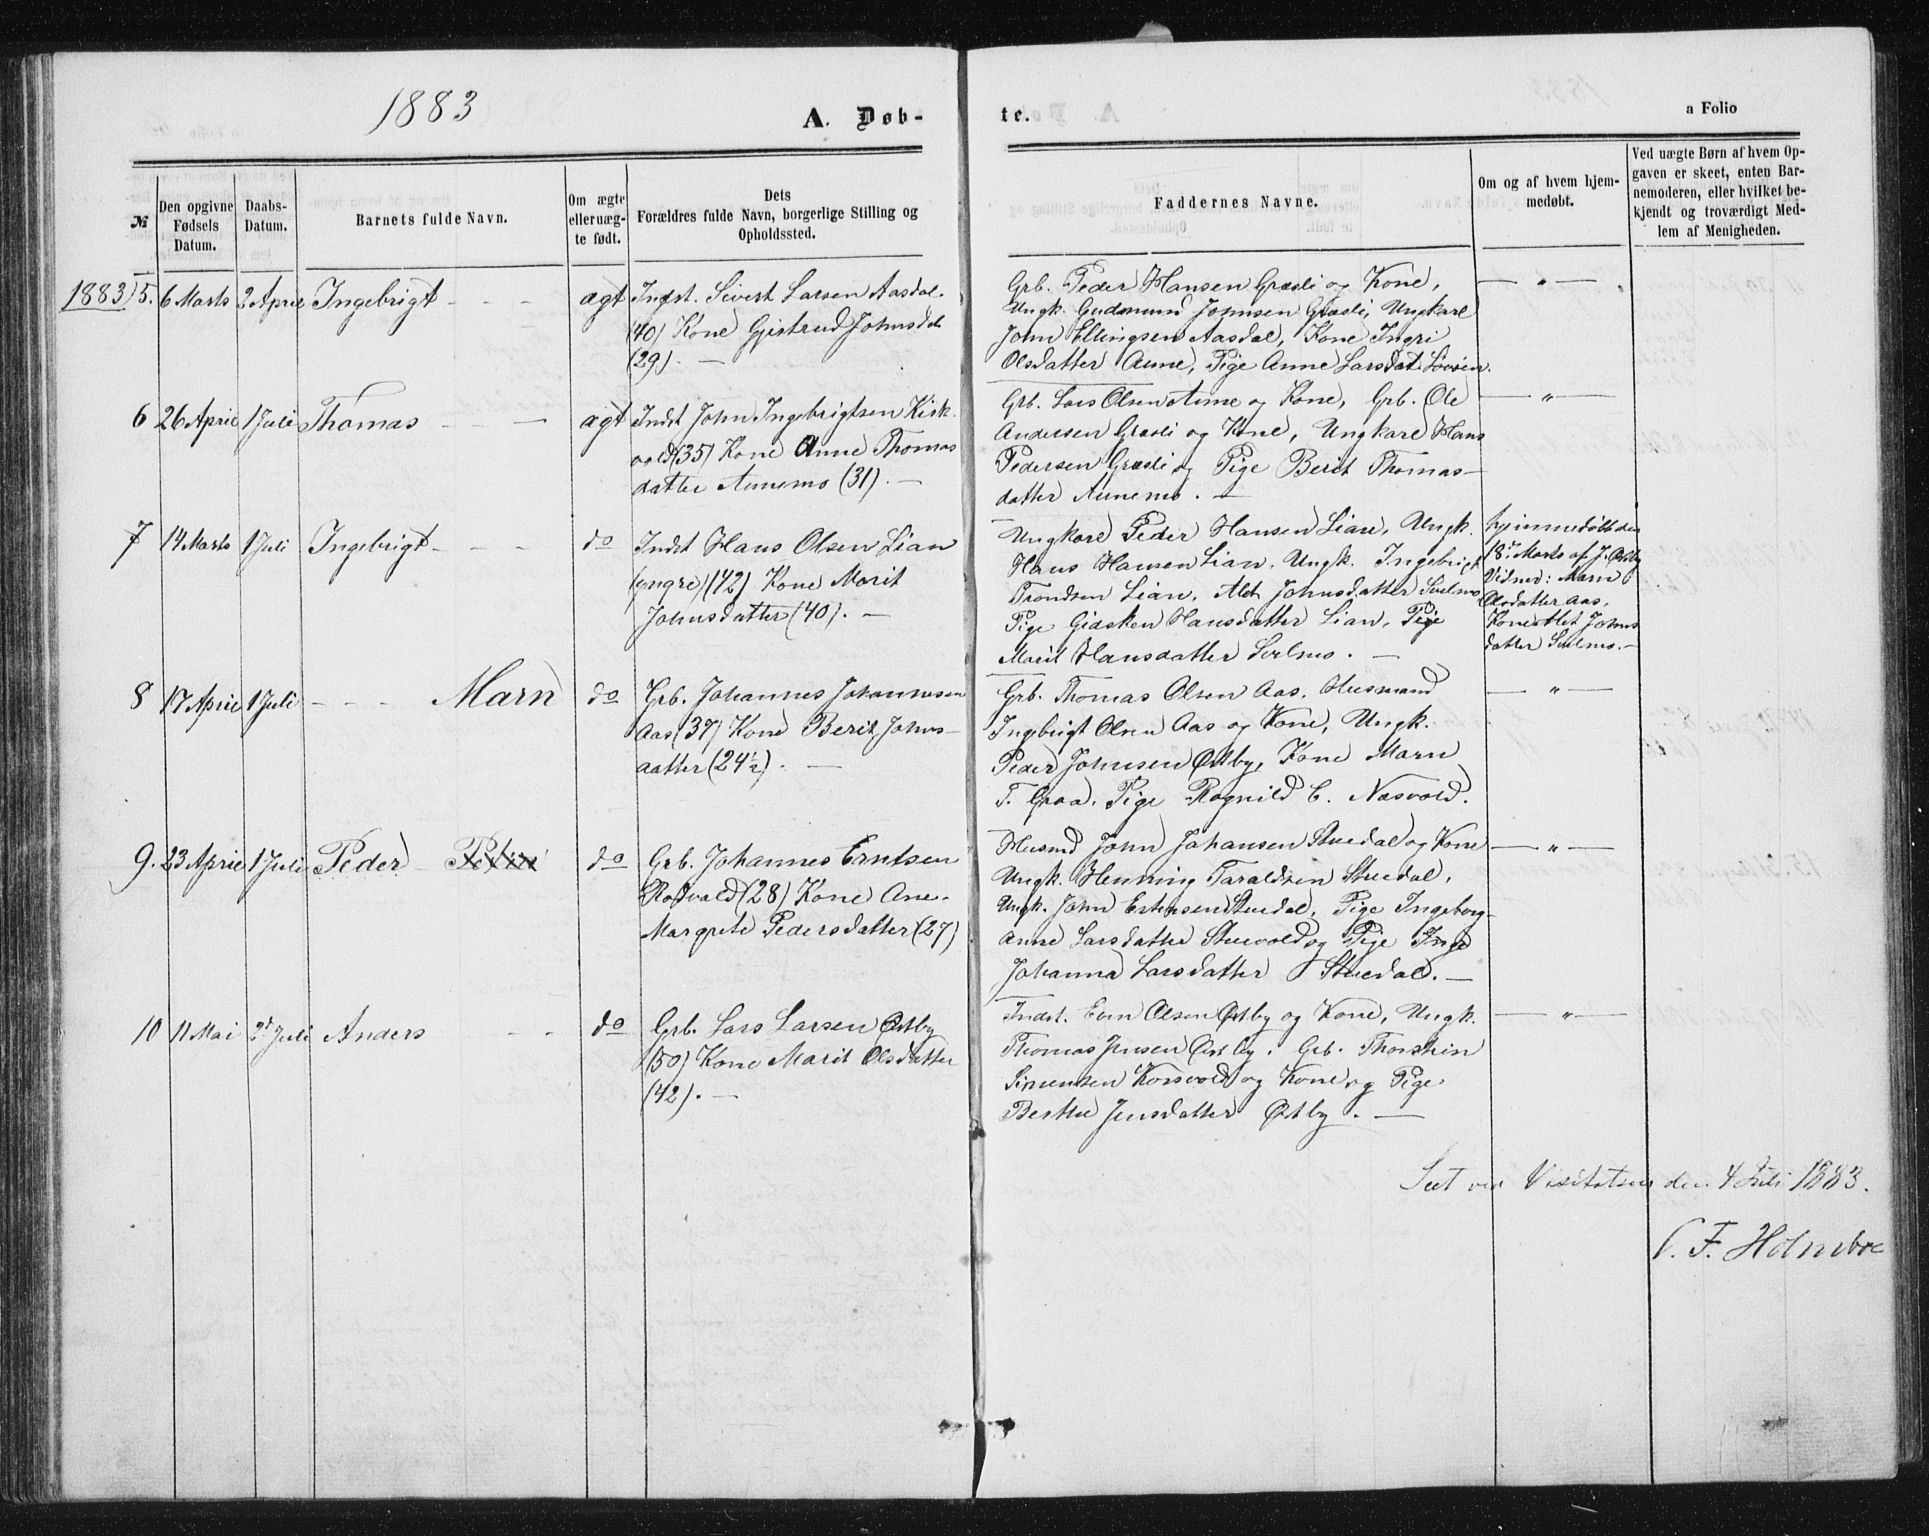 1883
A. Døb-
te.
a Folio
№
Den opgivne Fødsels Datum.
Daabs-Datum.
Barnets fulde Navn.
Om ægte eller uæg-te født.
Dets Forældres fulde Navn, borgerlige Stilling og Opholdssted.
Faddernes Navne.
Om og af hvem hjem-medøbt.
Ved uægte Børn af hvem Op-gaven er skeet, enten Bar-nemoderen, eller hvilket be-kjendt og troværdigt Med-lem af Menigheden.
1883 5. 6 Marts 2 April Ingebrigt - - - ægt Indst. Sivert Larsen Aasdal.
(40) Kone Gjertrud Johnsdat
(29). —
Grb. Peder Hansen Græsli og Kone, — " —
Ungk. Gudmund Johnsen Græsli, Ungkarl
John Ellingsen Aasdal, Kone Ingri
Olsdatter Aune, Pige Anne Larsdat
6 26 April 1 Juli Thomas - - — ægt Indst John Ingebrigtsen Kirk
vold (35) Kone Anne Thomas
datter Aunemo (31). —
Grb. Lars Olsen Aune og Kone, Grb. Ole — " —
Andersen Græsli og Kone, Ungkarl Hans
Pedersen Græsli og Pige Berit Thomas-
datter Aunemo. —
7 14 Marts 1 Juli Ingebrigt - - - do Indst Hans Olsen Lian
(yngre) (42) Kone Marit
Johnsdatter (40). —
Ungkarl Peder Hansen Lian, Ungk.
Hans Hansen Lian, Ungk. Ingebrigt
Trondsen Lian, Alet Johnsdatter Selmo
Pige Gidsken Hansdatter Lian, Pige
Marit Hansdatter Selmo. —
hjemmedøbt den
18de Marts af J. Østby
Vidner: Marn
Olsdatter Aas,
Kone Alet Johns
datter Selmo. —
8 17 April 1 Juli - - - Marn do Grb. Johannes Johannesen
Aas (37) Kone Berit Johns-
datter (24½). —
Grb. Thomas Olsen Aas, Husmand — " —
Ingebrigt Olsen Aas og Kone, Ungk.
Peder Johnsen Østby, Kone Marn
T. Graa, Pige Ragnild C. Næsvold.
9. 23 April 1 Juli Peder do Grb. Johannes Erntsen
Rotvold (28) Kone Ane
Margrete Pedersdatter (27)
Husmd John Johansen Stuedal og Kone — " —
Ungk. Henning Taraldsen Stuedal,
Ungk. John Estensen Stuedal, Pige Ingeborg
Anne Larsdatter Stuevold og Pige Inge
Johanna Larsdatter Stuedal. —
10 11 Mai 2d Juli Anders - - do Grb. Lars Larsen Østby
(50) Kone Marit Olsdatter
(42). —
Indst. Even Olsen Østby og Kone, Ungk. — " —
Thomas Jensen Østby, Grb. Thorstein
Simensen Korsvold og Kone og Pige
Berthe Jensdatter Østby. —
Seet ved Visitatsen den 4 Juli 1883.
C. F. Holmboe